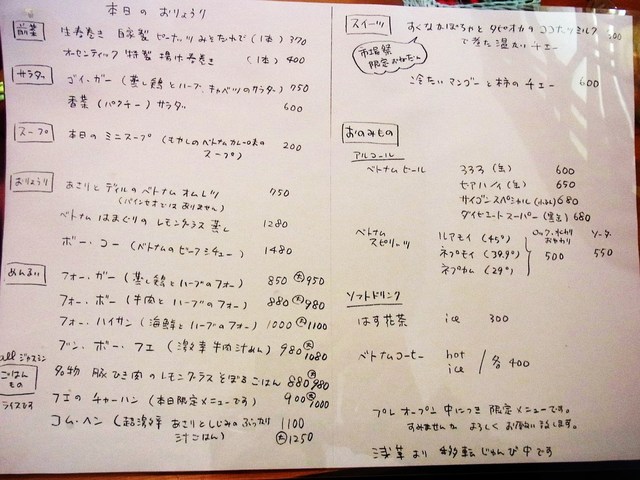 本日のおりょうり
前菜
生春巻き 自家製ピーナッツみそだれで (1本) 370
オーセンティック 特製 揚げ春巻き (1本) 400
サラダ
ゴイ・ガー (蒸し鶏とハーブ、キャベツのサラダ) 750
香菜 (パクチー) サラダ 600
スープ
本日のミニスープ (むかしのベトナムカレー味の 200
スープ)
おりょうり
あさりとディルのベトナムオムレツ 750
(バインセオではありません)
ベトナムはまぐりのレモングラス蒸し 1280
ボー・コー (ベトナムのビーフシチュー) 1480
めんるい
フォー・ガー (蒸し鶏とハーブのフォー) 850 大950
フォー・ボー (牛肉とハーブのフォー) 880 大980
フォー・ハイサン (海鮮とハーブのフォー) 1000 大1100
ブン・ボー・フエ (激辛牛肉汁めん) 980 大1080
all ジャスミン
ごはんもの
ライスです
名物 豚ひき肉のレモングラスそぼろごはん 880 大980
フエのチャーハン (本日限定メニューです) 900 大1000
コム・ヘン (超激辛 あさりとしじみのぶっかけ 1100
汁ごはん) 大1250
スイーツ
すくなかぼちゃとタピオカのココナッツミルク 500
で煮た温かいチェー
市場祭
限定おねだん
冷たいマンゴーと柿のチェー 600
おのみもの
アルコール
ベトナムビール
333 (缶) 600
ビアハノイ (缶) 650
サイゴンスペシャル 680
ダイビュートスーパー 680
ベトナム
スピリーツ
ロック、水わり
おゆわり
ソーダ
ルアモイ (45°)
ネプモイ (39.9°) 500 550
ネプカム (29°)
ソフトドリンク
はす花茶 ice 300
ベトナムコーヒー hot
ice / 各400
プレオープン中につき限定メニューです。
すみませんが よろしくお願い致します。
浅草より 移転じゅんび中です